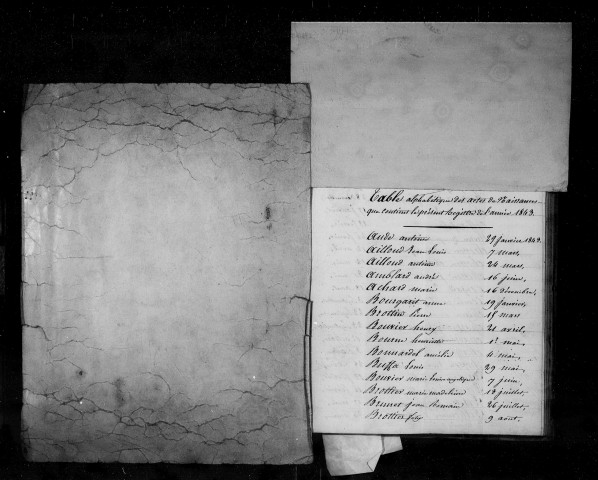 Table alphabétique des actes de Naissance
que contient le présent Registre de l'année 1843.
Aude antoine 29 Janvier 1843.
Ailloud Jean Louis 7 mars,
Ailloud antoine 24 mars,
Amblard andré 16 juin,
Achard marie 16 décembre,
Bourgarit anne 19 Janvier,
Brottier 15 mars
Bouvier henry 21 avril,
Bourne henriette 1er mai,
Bonnardel amélie 4 mai,
Buffa Louis 29 mai,
Bouvier marie Louise angélique 7 juin,
Brottier marie madeleine 12 juillet,
Brunet Jean Romain 26 juillet,
Brottier 9 aout,